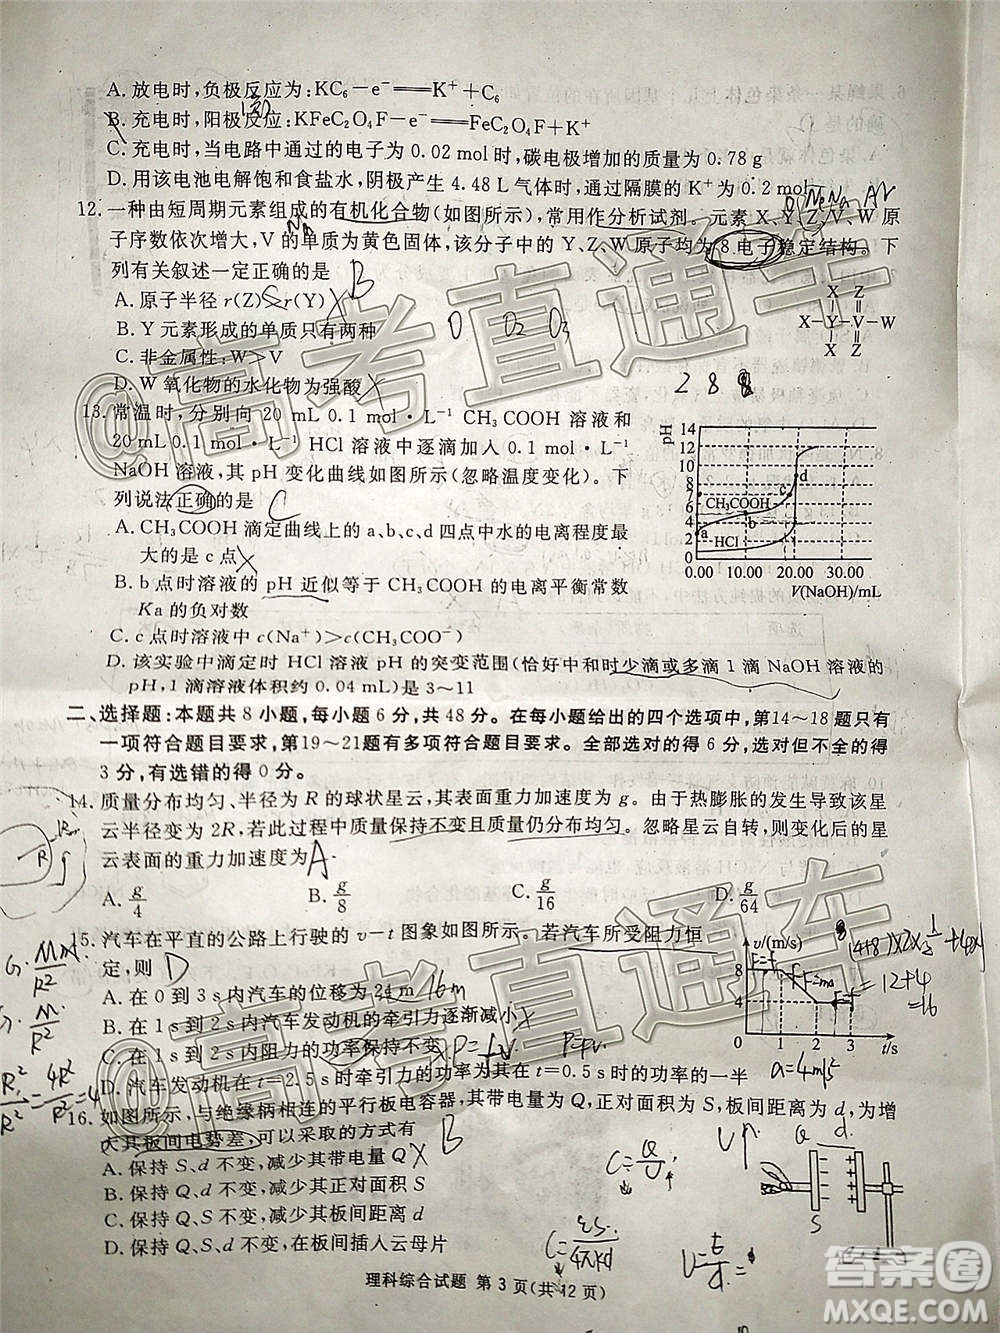 A.放电时,负极反应为:KC₆-e⁻═══K⁺+C₆
B.充电时,阳极反应:KFeC₂O₄F-e⁻═══FeC₂O₄F+K⁺
C.充电时,当电路中通过的电子为0.02 mol时,碳电极增加的质量为0.78 g
D.用该电池电解饱和食盐水,阴极产生4.48 L气体时,通过隔膜的K⁺为0.2 mol
12.一种由短周期元素组成的有机化合物(如图所示),常用作分析试剂。元素X、Y、Z、V、W原
子序数依次增大,V的单质为黄色固体,该分子中的Y、Z、W原子均为8电子稳定结构。下
列有关叙述一定正确的是 B
A.原子半径r(Z)>r(Y)
B.Y元素形成的单质只有两种 O O₂ O₃
C.非金属性:W>V
D.W氧化物的水化物为强酸
X Z
X-Y-V-W
X Z
2 8 8
13.常温时,分别向20 mL 0.1 mol·L⁻¹ CH₃COOH溶液和
20 mL 0.1 mol·L⁻¹ HCl溶液中逐滴加入0.1 mol·L⁻¹
NaOH溶液,其pH变化曲线如图所示(忽略温度变化)。下
列说法正确的是 C
A.CH₃COOH滴定曲线上的a、b、c、d四点中水的电离程度最
大的是c点
B.b点时溶液的pH近似等于CH₃COOH的电离平衡常数
Ka的负对数
C.c点时溶液中c(Na⁺)>c(CH₃COO⁻)
D.该实验中滴定时HCl溶液pH的突变范围(恰好中和时少滴或多滴1滴NaOH溶液的
pH,1滴溶液体积约0.04 mL)是3~11
pH
14
12
10
8
6
4
2
CH₃COOH
HCl
a
b
c
d
0.00 10.00 20.00 30.00
V(NaOH)/mL
二、选择题:本题共8小题,每小题6分,共48分。在每小题给出的四个选项中,第14~18题只有
一项符合题目要求,第19~21题有多项符合题目要求。全部选对的得6分,选对但不全的得
3分,有选错的得0分。
14.质量分布均匀、半径为R的球状星云,其表面重力加速度为g。由于热膨胀的发生导致该星
云半径变为2R,若此过程中质量保持不变且质量仍分布均匀。忽略星云自转,则变化后的星
云表面的重力加速度为 A
A. g/4 B. g/8 C. g/16 D. g/64
15.汽车在平直的公路上行驶的v-t图象如图所示。若汽车所受阻力恒
定,则 D
A.在0到3 s内汽车的位移为24 m 16m
B.在1 s到2 s内汽车发动机的牵引力逐渐减小
C.在1 s到2 s内阻力的功率保持不变
D.汽车发动机在t=2.5 s时牵引力的功率是在t=0.5 s时的功率的一半
v/(m/s)
8
4
0 1 2 3 t/s
12+4
=16
a=4m/s²
16.如图所示,与绝缘柄相连的平行板电容器,其带电量为Q,正对面积为S,板间距离为d,为增
大其板间电势差,可以采取的方式有 B
A.保持S、d不变,减少其带电量Q
B.保持Q、d不变,减少其正对面积S
C.保持Q、S不变,减少其板间距离d
D.保持Q、S、d不变,在板间插入云母片
U↑
Q d
S
C=Q/U
C=εS/4πkd
理科综合试题 第3页(共12页)
@高考直通车
@高考直通车
答案圈
MXQE.COM